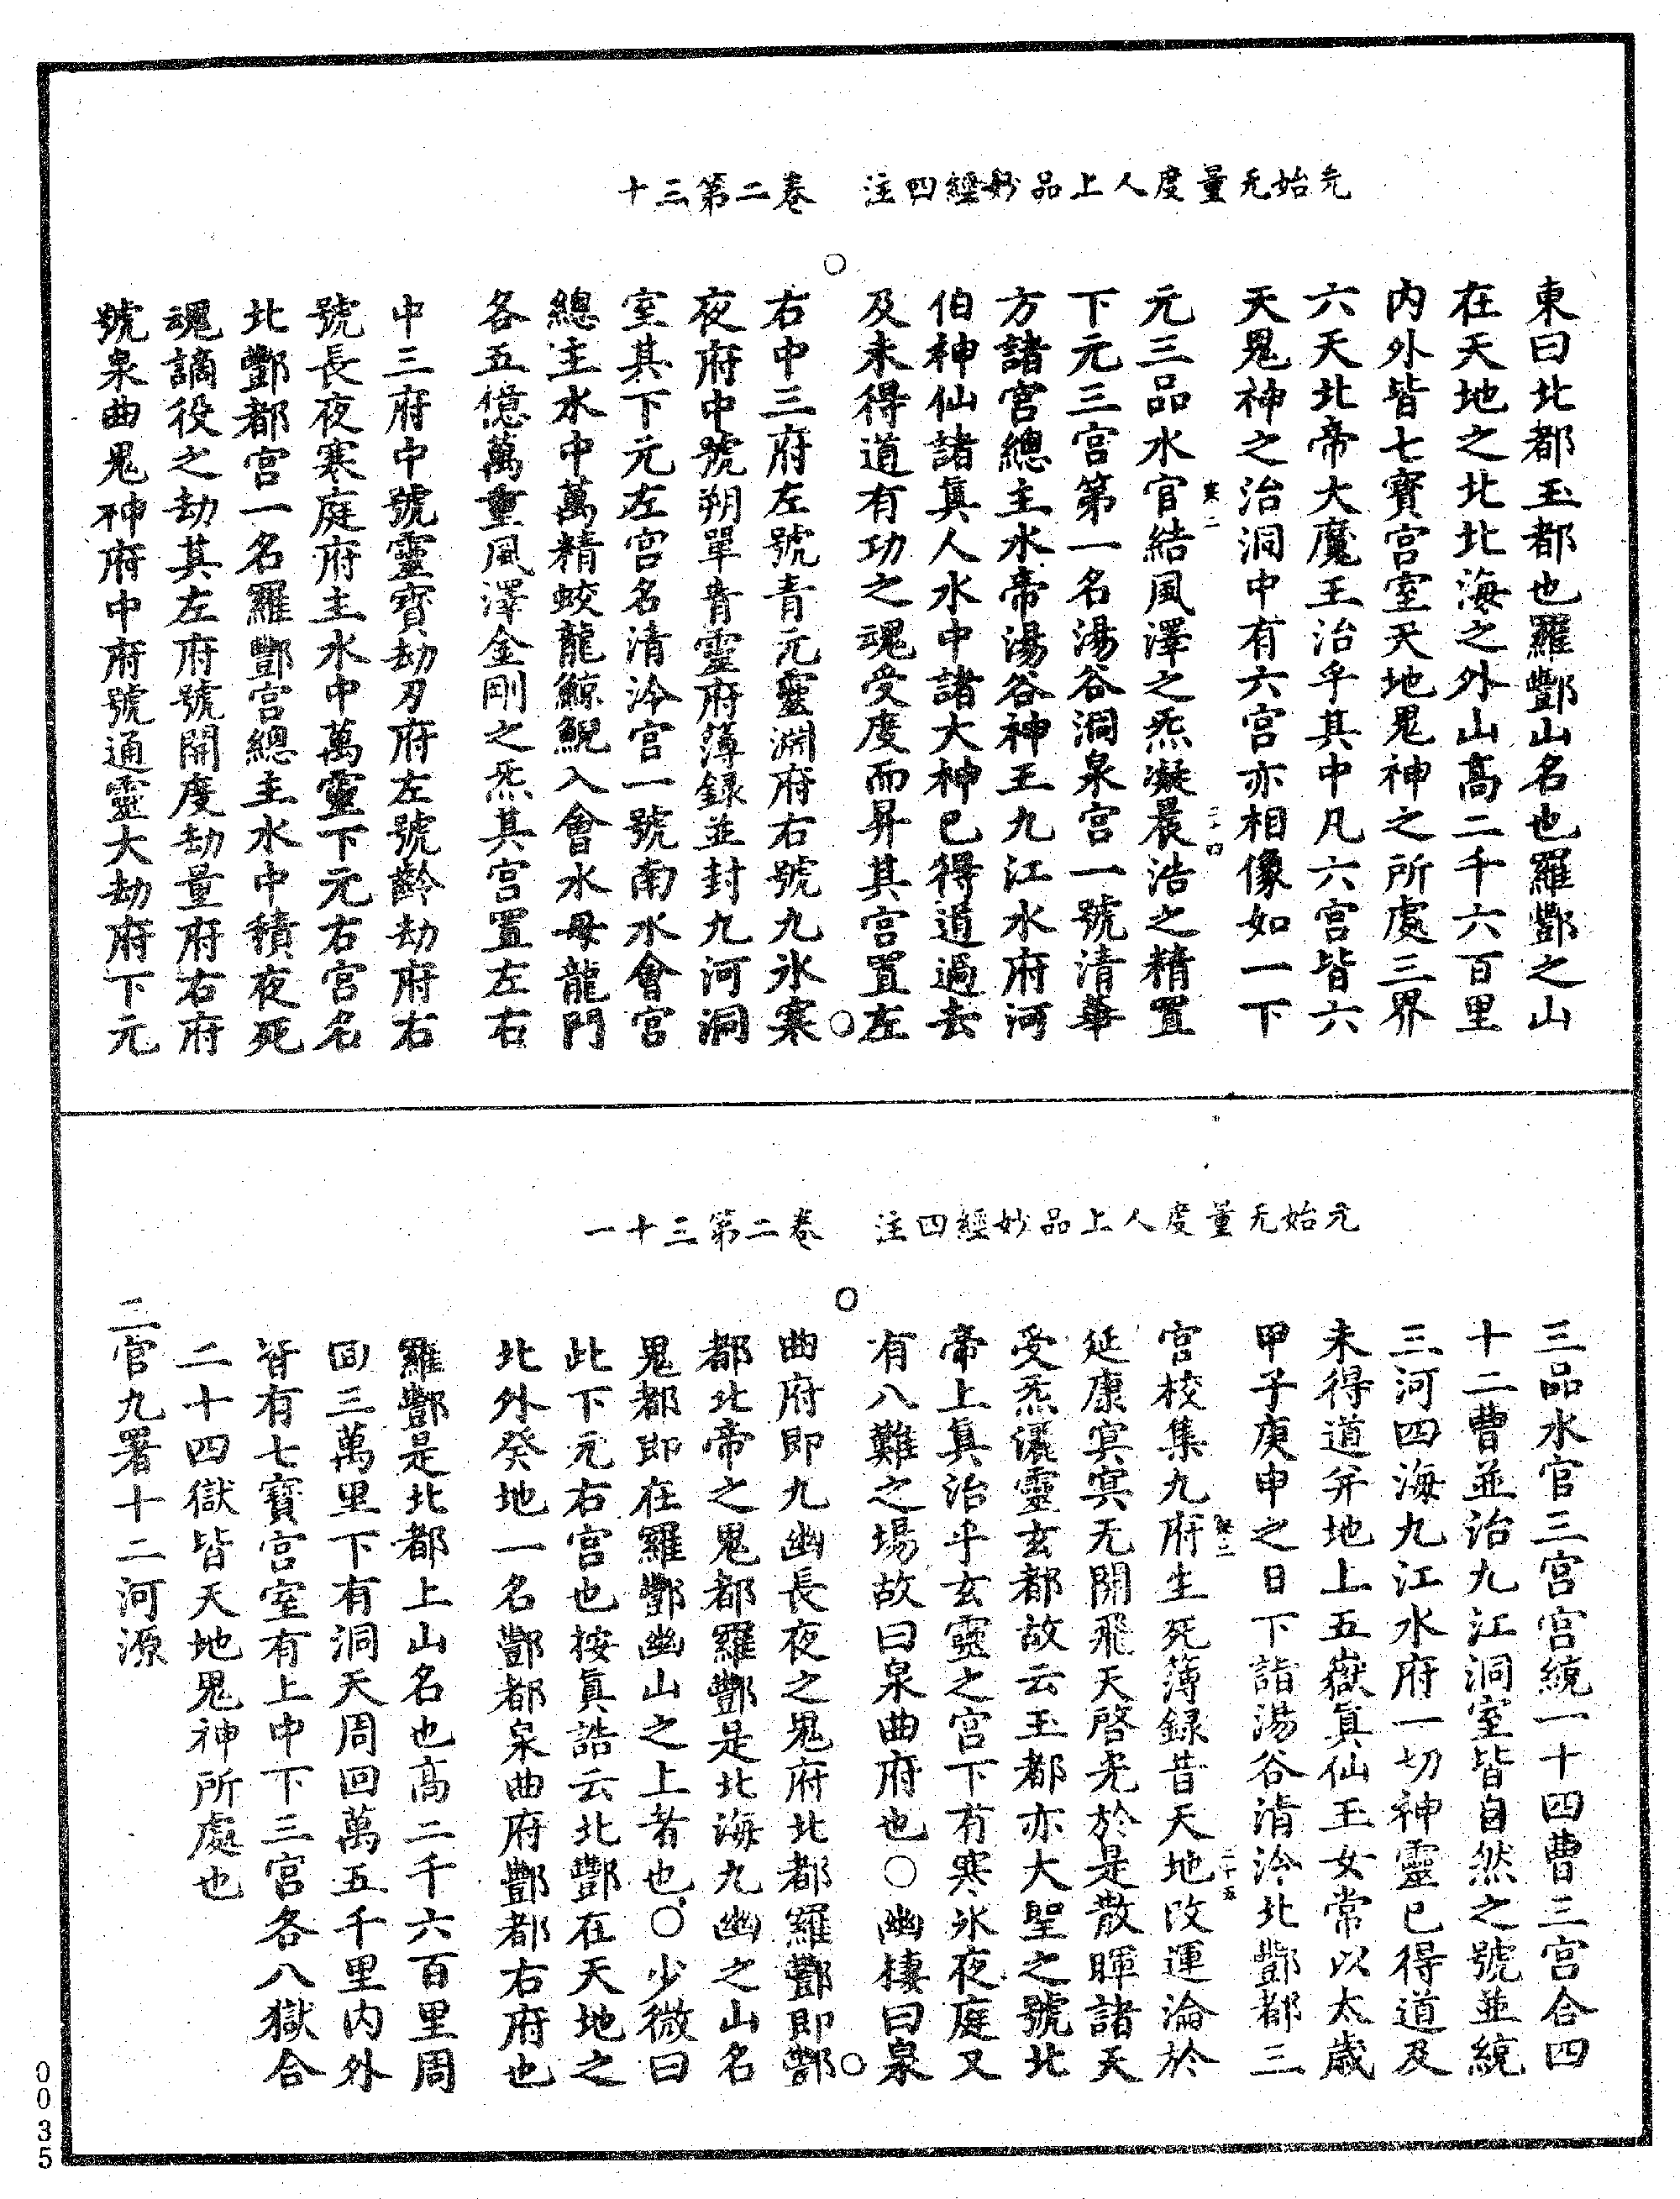 元始无量度人上品妙經四注　卷二第三十
東曰北都玉都也羅酆山名也羅酆之山
在天地之北北海之外山高二千六百里
内外皆七寶宮室天地鬼神之所處三界
六天北帝大魔王治乎其中凡六宮皆六
天鬼神之治洞中有六宮亦相像如一下
寒二　二十四
元三品水官結風澤之炁凝晨浩之精置
下元三宮第一名湯谷洞泉宮一號清華
方諸宮總主水帝湯谷神王九江水府河
伯神仙諸眞人水中諸大神已得道過去
及未得道有功之魂受度而昇其宮置左
右中三府左號青元靈淵府右號九氷寒
夜府中號朔單青靈府簿録並封九河洞
室其下元左宮名清泠宮一號南水會宮
總主水中萬精蛟龍鯨鯢入會水母龍門
各五億萬重風澤金剛之炁其宮置左右
中三府中號靈寶劫刃府左號齡劫府右
號長夜寒庭府主水中萬靈下元右宮名
北酆都宮一名羅酆宮總主水中積夜死
魂謫役之劫其左府號開度劫量府右府
號泉曲鬼神府中府號通靈大劫府下元
元始无量度人上品妙經四注　卷二第三十一
三品水官三宮宮統一十四曹三宮合四
十二曹並治九江洞室皆自然之號並統
三河四海九江水府一切神靈已得道及
未得道并地上五嶽眞仙玉女常以太歲
甲子庚申之日下詣湯谷清泠北酆都三
寒二　二十五
宮校集九府生死簿録昔天地改運淪於
延康冥冥无開飛天啓光於是散暉諸天
受炁灑靈玄都故云玉都亦大聖之號北
帝上眞治乎玄靈之宮下有寒氷夜庭又
有八難之場故曰泉曲府也○幽棲曰泉
曲府即九幽長夜之鬼府北都羅酆即酆
都北帝之鬼都羅酆是北海九幽之山名
鬼都即在羅酆幽山之上者也○少微曰
此下元右宮也按眞誥云北酆在天地之
北外癸地一名酆都泉曲府酆都右府也
羅酆是北都上山名也高二千六百里周
回三萬里下有洞天周回萬五千里内外
皆有七寶宮室有上中下三宮各八獄合
二十四獄皆天地鬼神所處也
二官九署十二河源
0035